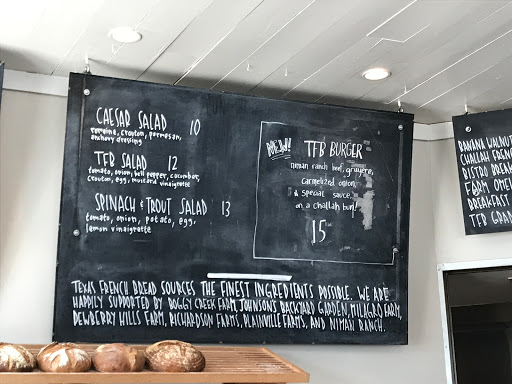 CAESAR SALAD 10
romaine, crouton, parmesan,
anchovy dressing
TFB SALAD 12
tomato, onion, bell pepper, cucumber,
crouton, egg, mustard vinaigrette
SPINACH & TROUT SALAD 13
tomato, onion, potato, egg,
lemon vinaigrette
TFB BURGER
niman ranch beef, gruyere,
carmelized onion
& special sauce
on a challah bun.
15
TEXAS FRENCH BREAD SOURCES THE FINEST INGREDIENTS POSSIBLE. WE ARE
HAPPILY SUPPORTED BY BOGGY CREEK FARM, JOHNSON'S BACKYARD GARDEN, MILAGRO FARM,
DEWBERRY HILLS FARM, RICHARDSON FARMS, PLAINVILLE FARMS, AND NIMAN RANCH.
BANANA WALNUT
CHALLAH
BISTRO BREAK
FARM OME
BREAKFAST
TFB GRA